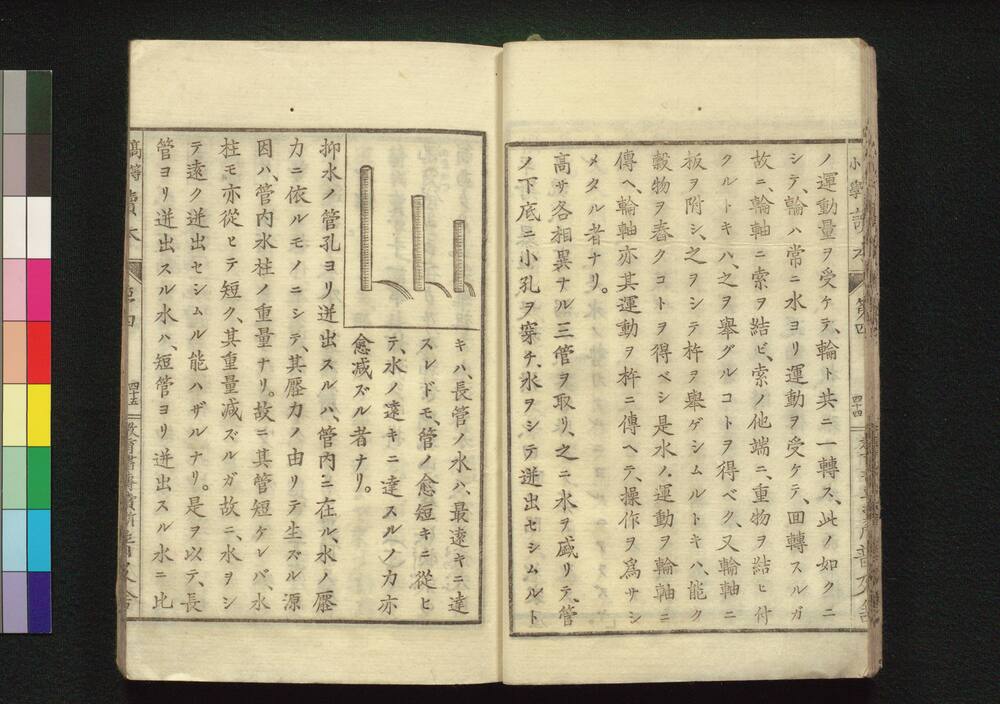 ノ運動量ヲ受ケテ、輪ト共ニ一轉ス、此ノ如クニ
シテ、輪ハ常ニ水ヨリ運動ヲ受ケテ、回轉スルガ
故ニ、輪軸ニ索ヲ結ビ、索ノ他端ニ、重物ヲ結ヒ付
クルトキハ、之ヲ舉グルコトヲ得ベク、又輪軸ニ
扳ヲ附シ、之ヲシテ杵ヲ舉ゲシムルトキハ、能ク
穀物ヲ舂クコトヲ得ベシ是水ノ運動ヲ輪軸ニ
傳ヘ、輪軸亦其運動ヲ杵ニ傳ヘテ、操作ヲ爲サシ
メタル者ナリ。
高サ各相異ナル三管ヲ取リ、之ニ水ヲ盛リテ、管
ノ下底ニ小孔ヲ穿チ、水ヲシテ迸出セシムルト
キハ、長管ノ水ハ、最遠キニ達
スレドモ、管ノ愈短キニ從ヒ
テ、水ノ遠キニ達スルノ力亦
愈減ズル者ナリ。
抑水ノ管孔ヨリ迸出スルハ、管内ニ在ル、水ノ壓
力ニ依ルモノニシテ、其壓力ノ由リテ生ズル源
因ハ、管内水柱ノ重量ナリ。故ニ其管短ケレバ、水
柱モ亦從ヒテ短ク、其重量減ズルガ故ニ、水ヲシ
テ遠ク迸出セシムル能ハザルナリ。是ヲ以テ、長
管ヨリ迸出スル水ハ、短管ヨリ迸出スル水ニ比
小學讀本
第四
四十四
高等讀本
四十五